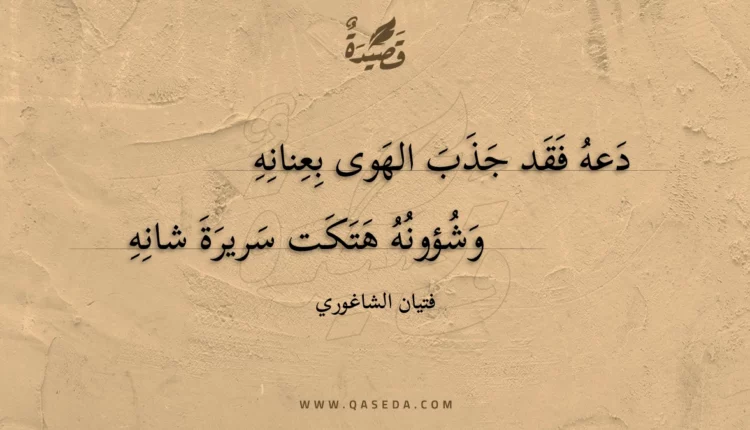 قَصِيدَةٌ
دَعهُ فَقَد جَذَبَ الهَوى بِعِنانِهِ
وَشُؤونُهُ هَتَكَت سَريرَةَ شانِهِ
فتيان الشاغوري
WWW.QASEDA.COM